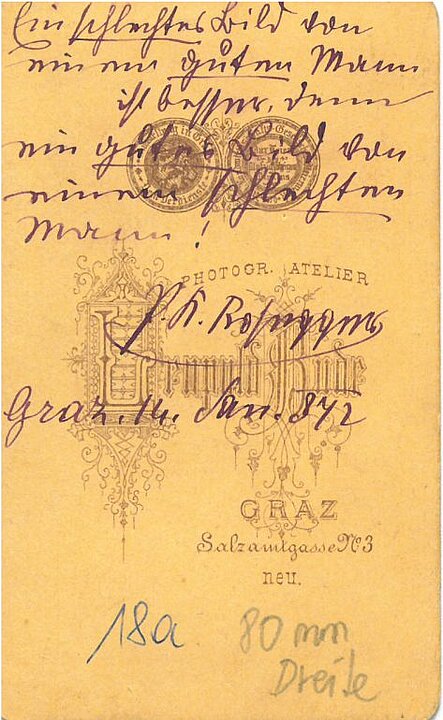 Ein schlechtes Bild von
einem guten Mann
ist besser, denn
ein gutes Bild von
einem schlechten
Mann!
PHOTOGR. ATELIER
P. K. Rosegger
Leopold Bude
Graz, 14. Jan. 872
GRAZ
Salzamtgasse No 3
neu.
18a
80 mm
Breite